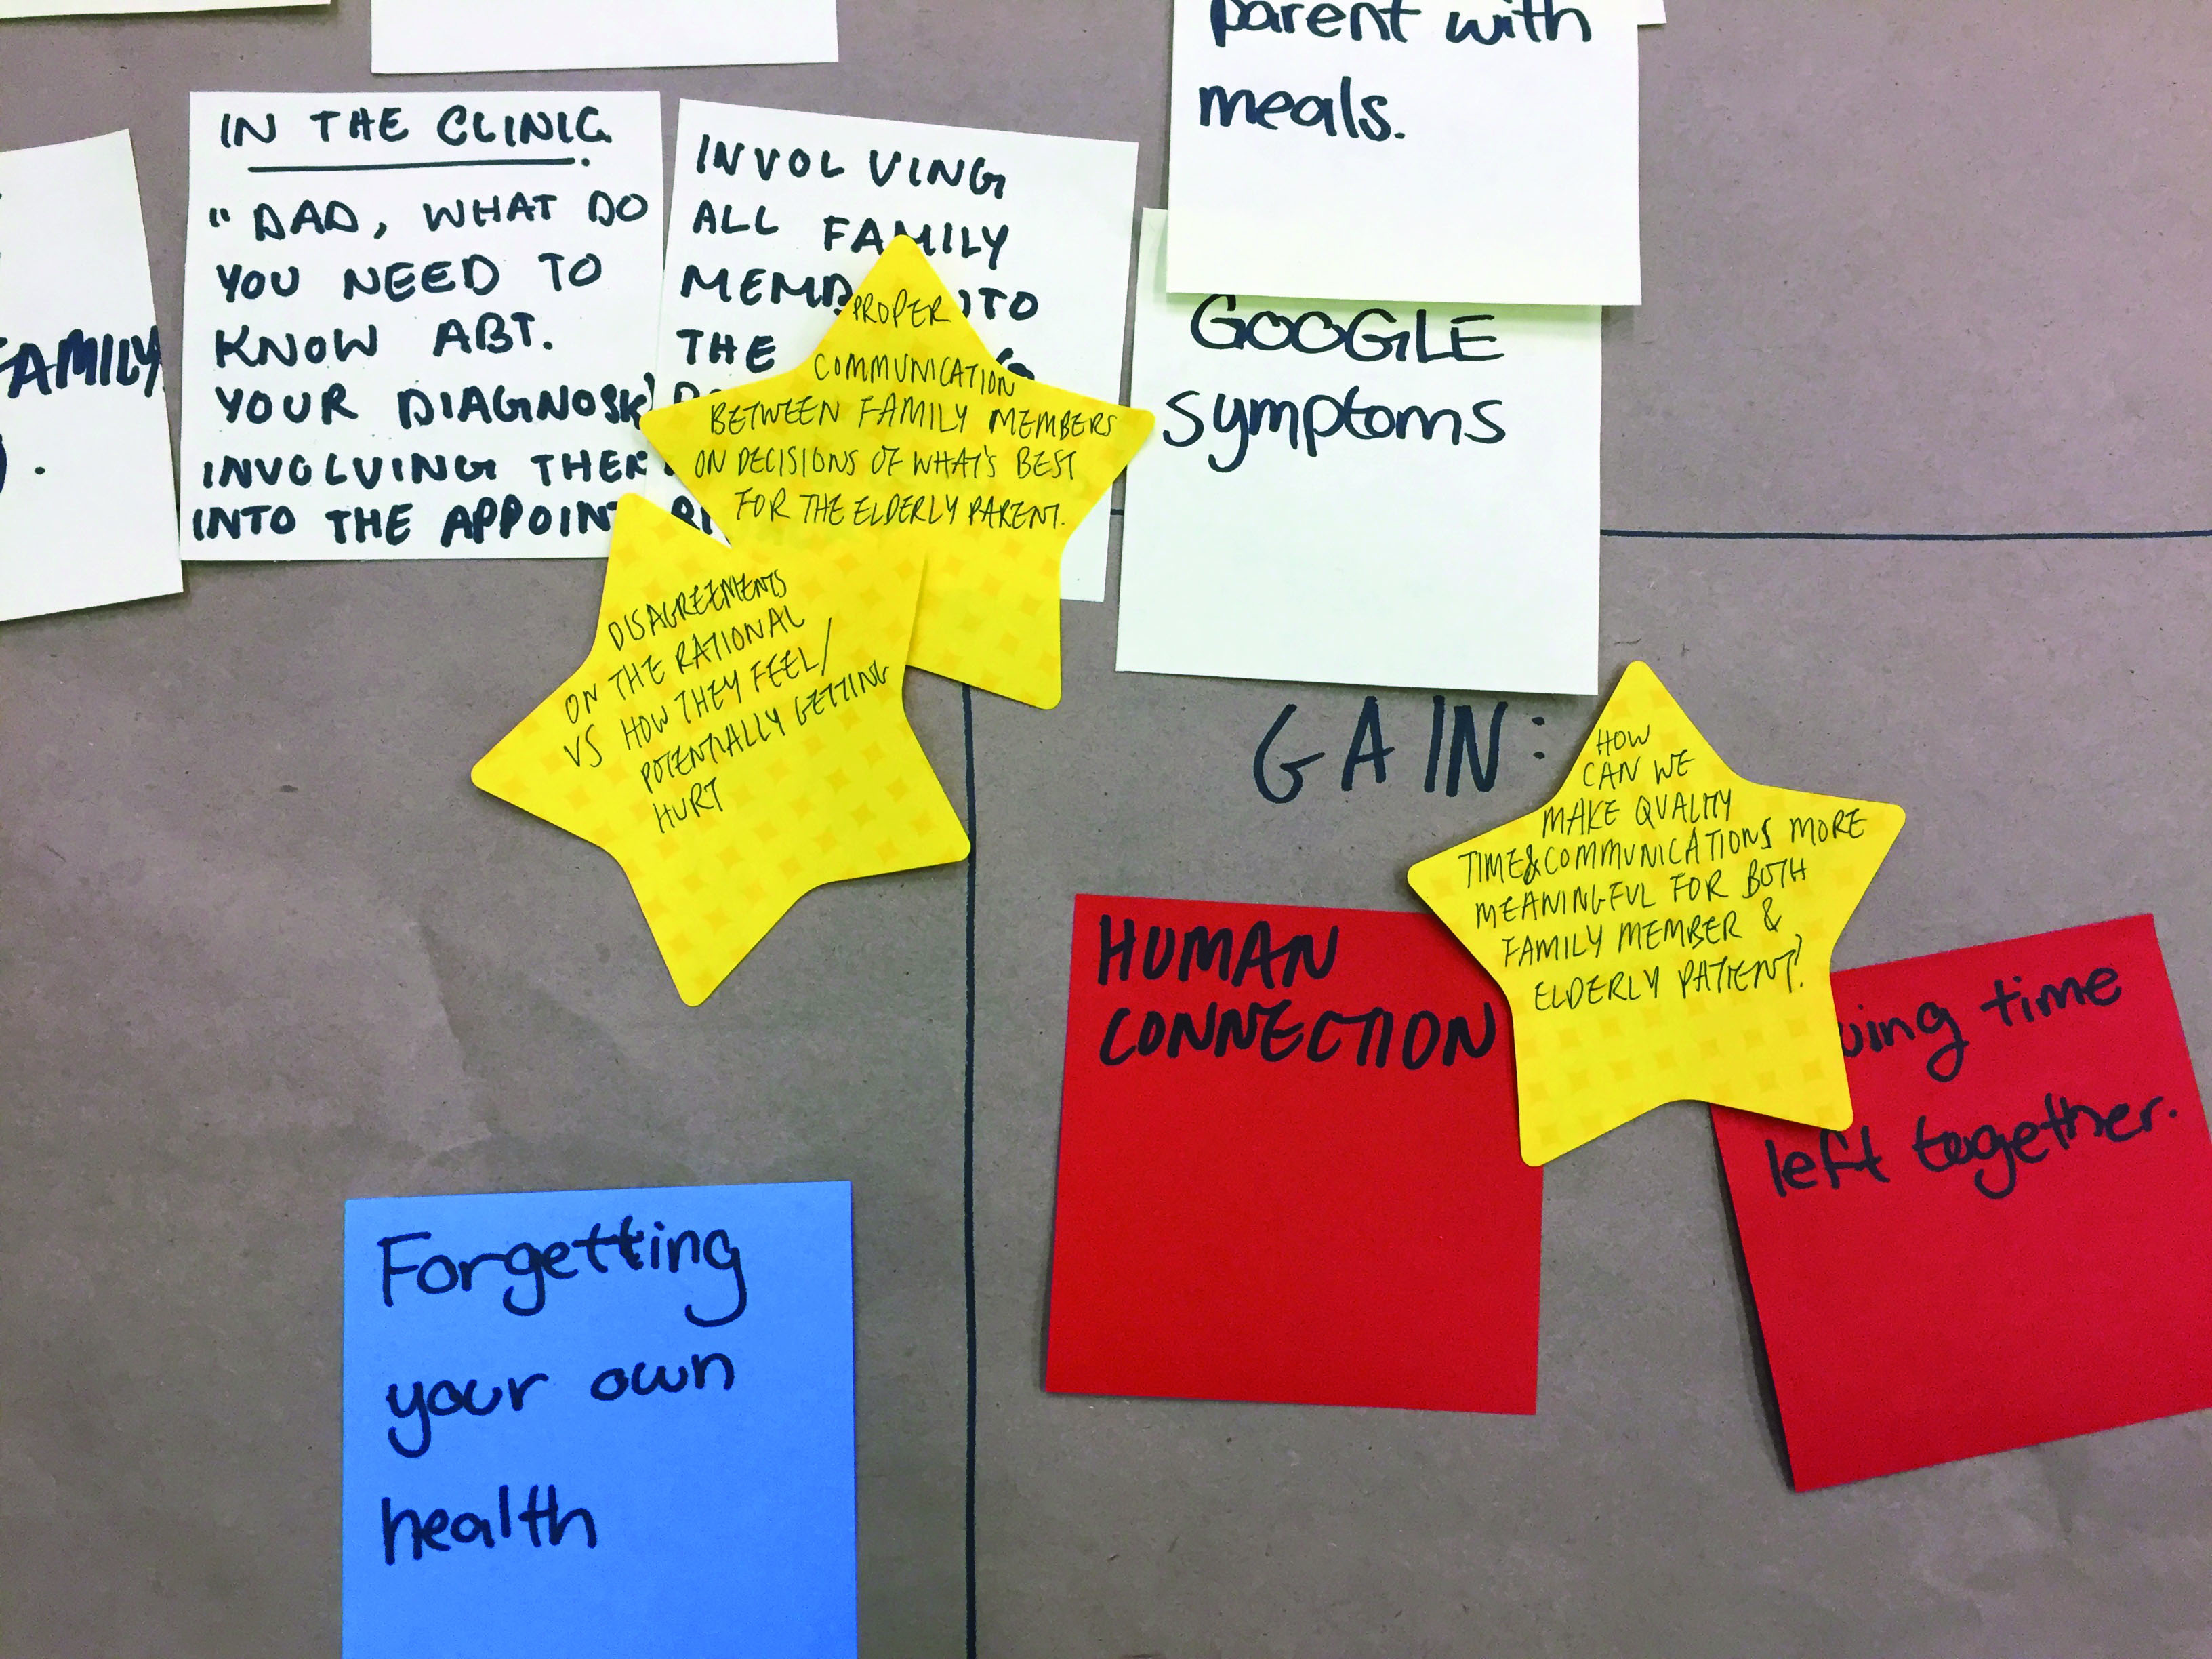 FAMILY
IN THE CLINIC
"DAD, WHAT DO
YOU NEED TO
KNOW ABT.
YOUR DIAGNOSIS
INVOLVING THEM
INTO THE APPOINT
INVOLVING
ALL FAMILY
THE
PROPER
COMMUNICATION
BETWEEN FAMILY MEMBERS
ON DECISIONS OF WHAT'S BEST
FOR THE ELDERLY PARENT.
DISAGREEMENTS
ON THE RATIONAL
VS HOW THEY FEEL/
POTENTIALLY GETTING
HURT
parent with
meals.
GOOGLE
symptoms
GAIN:
HOW
CAN WE
MAKE QUALITY
TIME & COMMUNICATIONS MORE
MEANINGFUL FOR BOTH
FAMILY MEMBER &
ELDERLY PATIENT?
HUMAN
CONNECTION
time
left together.
Forgetting
your own
health